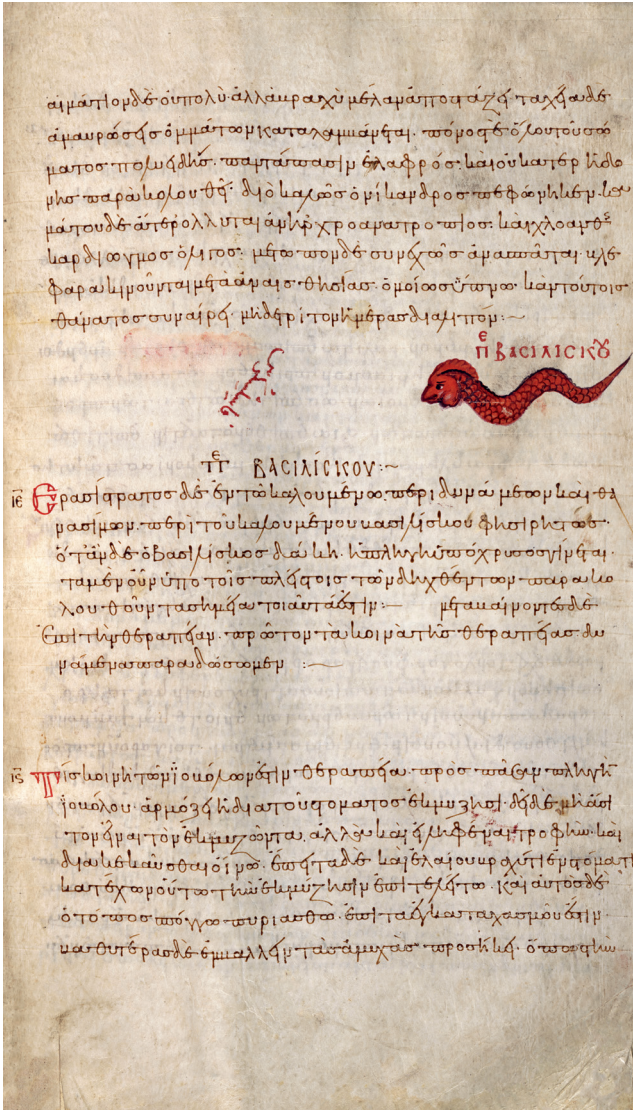 αἱμάτιον δὲ οὐ πολὺ ἀλλὰ βραχὺ μέλαν ἀποστάζει· ταχεῖα δὲ
ἀμαύρωσεις ὀμμάτων καταλαμβάνεται· πόνος τε ὅλου τοῦ σώ
ματος πολυειδὴς· παντάπασιν ἐλαφρός· καὶ οὐκ ἄτερ ἡδο
νῆς παρακολουθεῖ· διὸ καλῶς ὁ νίκανδρος πεφώνηκεν· κα
μάτου δὲ ἄτερ ὄλλυται ἀνὴρ χρόα καὶ χλοανθὴς
καρδιωγμος ὀλίγος· μέτωπον δὲ συνεχῶς ἀνασπᾶται· βλέ
φαρα κινοῦνται μετὰ ἀναισθησίας· ὁμοίως ὕπνω· κἀν τούτοις
θάνατος συναιρεῖ· μηδε τρίτον ἡμέρας διαλιπόν :~
πε ΒΑCΙΛΙCΚΟΥ
πε ΒΑCΙΛΙCΚΟΥ :~
ιε Ερασίστρατος δὲ ἐν τῶ καλουμένω περὶ δυνάμεων καὶ θα
νασίμων· περὶ τοῦ καλουμένου βασιλίσκου φησὶ ρητῶς·
ὅταν δὲ ὁ βασιλίσκος δάκη· ἡ πληγὴ ὑπόχρυσος γίνεται·
τα μὲν οὖν ὑπὸ τοῖς πλείστοις τῶν δηχθέντων παρακο
λουθοῦντα σημεῖα τοιαῦτα ἐστίν :— μεταβαίνοντες δὲ
Ἐπὶ τὴν θεραπείαν· πρῶτον τὰ κοινὰ τῆς θεραπείας δυ
νάμενα παραδώσωμεν :~
ις Πίσκοινὴ τῶν ἰοβόλων ἐστὶν θεραπεία· πρὸς πᾶσαν πληγὴν
ἰοβόλου· ἁρμόζει ἡ διὰ τοῦ στόματος ἐκμύζησις· δεῖ δὲ μὴ ἄσι
τον εἶναι τὸν ἐκμυζῶντα· ἀλλὰ καὶ εἰληφέναι τροφὴν· καὶ
διακεκλύσθαι οἴνω· ἔπειτα δὲ καὶ ἐλαίου βραχύ τι ἐν στόματι
κατέχων οὕτω τὴν ἐκμύζησιν ἐπιτελείτω· καὶ αὐτὸς δὲ
ὁ τόπος σπόγγω πυριάσθω· ἐπιτα ἐγκαταχασμοῦ ἐστιν·
βαθυτέρας δὲ ἐμβάλλειν τὰς ἀμυχὰς προσήκει· ὅπως τὴν